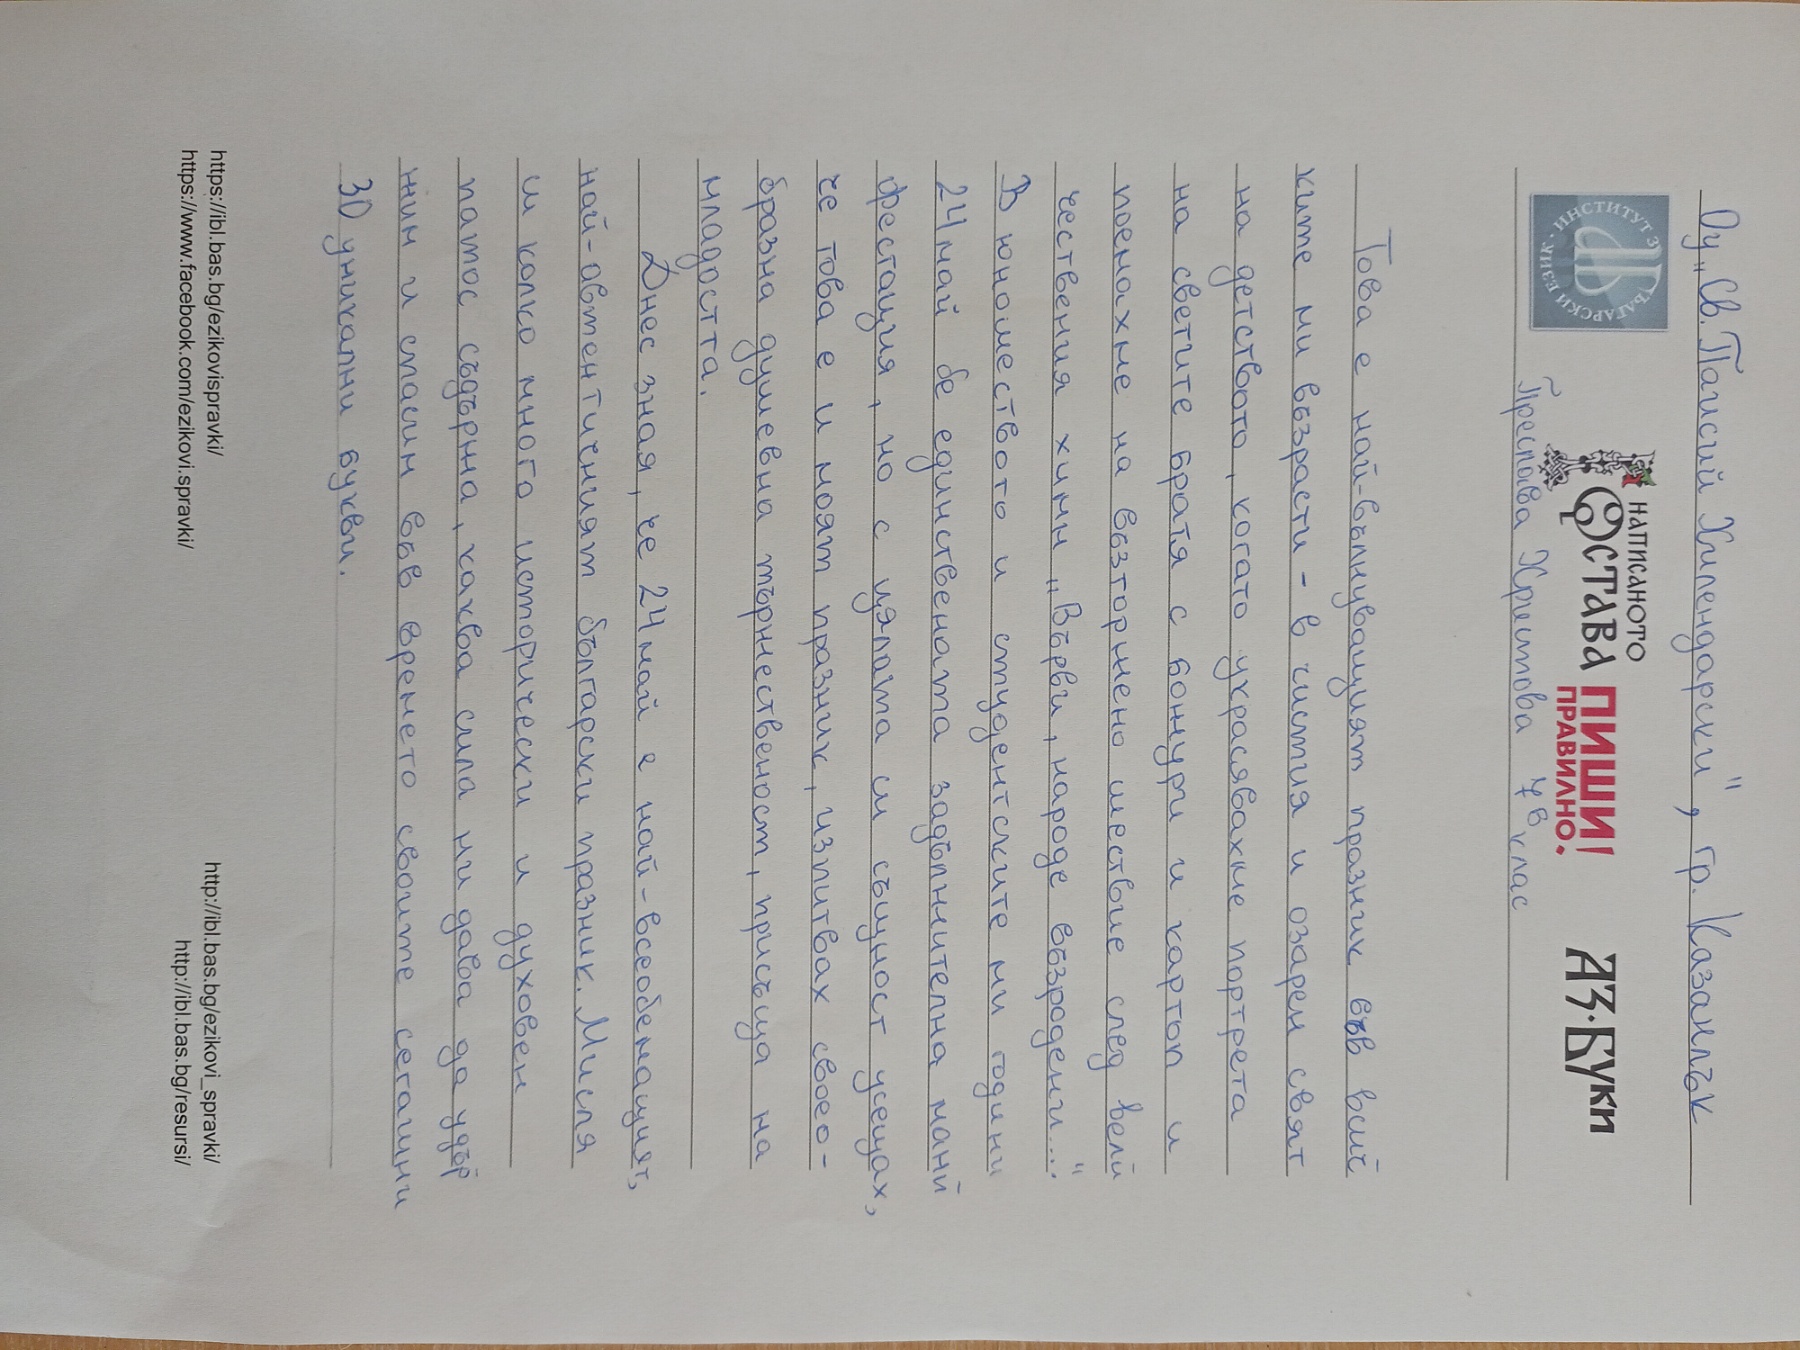 Оу „Св. Паисий Хилендарски", гр. Казанлък
ИНСТИТУТ ЗА БЪЛГАРСКИ ЕЗИК
НАПИСАНОТО
ОСТАВА ПИШИ!
ПРАВИЛНО.
АЗ·БУКИ
Преслава Христова 7в клас
Това е най-вълнуващият празник във всич
ките ми възрасти - в чистия и озарен свят
на детството, когато украсявахме портрета
на светите братя с божури и картон и
поемахме на възторжено шествие след вели
чествения химн „Върви, народе възродени..."
В юношеството и студентските ми години
24 май бе единствената задължителна мани
фестация, но с цялата си същност усещах,
че това е и моят празник, изпитвах свое-
бразна душевна тържественост, присъща на
младостта.
Днес зная, че 24 май е най-всеобемащият,
най-автентичният български празник. Мисля
и колко много исторически и духовен
патос съдържа, каква сила ни дава да удър
жим и спасим във времето своите сегашни
30 уникални букви.
https://ibl.bas.bg/ezikovispravki/
https://www.facebook.com/ezikovi.spravki/
http://ibl.bas.bg/ezikovi_spravki/
http://ibl.bas.bg/resursi/